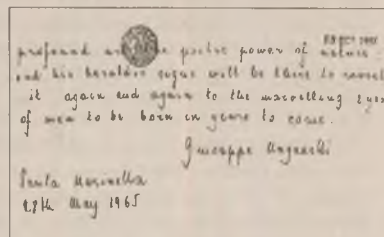 profound and the poetic power of nature
and his heraldic signs will be there to reveal
it again and again to the marvelling eyes
of men to be born in years to come.
Giuseppe Ungaretti
Santa Marinella
28th May 1965